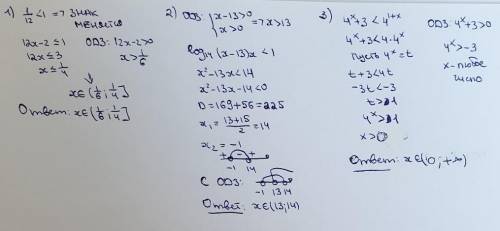 1) 1/12 < 1 => ЗНАК
МЕНЯЕТСЯ
12x-2 ≤ 1   ОДЗ: 12x-2>0
12x ≤ 3   x > 1/6
x ≤ 1/4
x∈(1/6; 1/4]
Ответ: x∈(1/6; 1/4]
2) ОДЗ: {x-13>0
{x>0 => x>13
log14 (x-13)x < 1
x²-13x<14
x²-13x-14<0
D=169+56=225
x₁ = (13+15)/2 = 14
x₂ = -1
+ - +
-1 14
С ОДЗ:
-1 13 14
Ответ: x∈(13;14)
3) 4ˣ+3<4¹⁺ˣ   ОДЗ: 4ˣ+3>0
4ˣ+3<4·4ˣ   4ˣ>-3
Пусть 4ˣ=t   x-любое
t+3<4t   число
-3t<-3
t>1
4ˣ>1
x>0
Ответ: x∈(0; +∞)